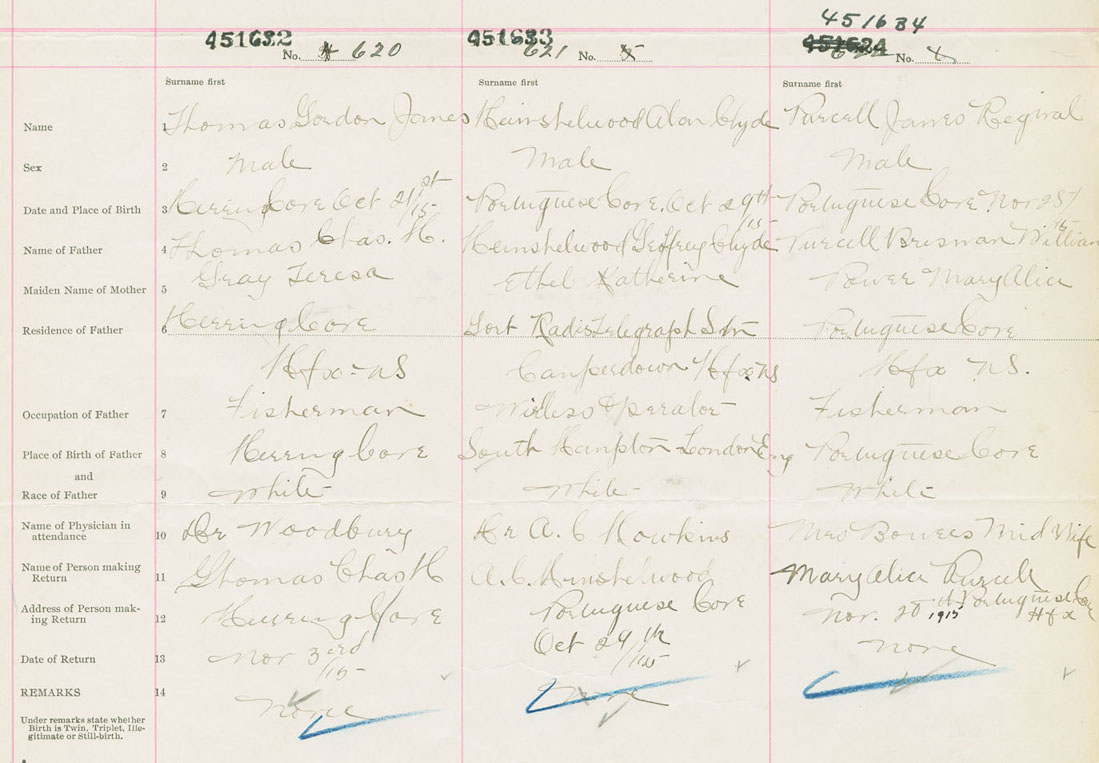 451632
No. 4 620
451633
621 No. 5
451634
451634
No. 6
Surname first
Surname first
Surname first
Name 1 Thomas Gordon James
Heinshelwood Alan Clyde
Purcell James Reginal
Sex 2 Male
Male
Male
Date and Place of Birth 3 Herring Cove Oct 21st/15
Portuguese Cove. Oct 29th/15
Portuguese Cove. Nov 25/15
Name of Father 4 Thomas Chas. H.
Heinshelwood Geffrey Clyde
Purcell William
Maiden Name of Mother 5 Gray Teresa
Ethel Katherine
Power Mary Alice
Residence of Father 6 Herring Cove
Gort Radio Telegraph Stn
Portuguese Cove
Hfx - NS
Camperdown Hfx. NS
Hfx NS.
Occupation of Father 7 Fisherman
Wirliss Operator
Fisherman
Place of Birth of Father 8 Herring Cove
South Hampton London Eng
Portuguese Cove
and
Race of Father 9 White
White
White
Name of Physician in attendance 10 Dr Woodbury
Dr A. C Howkins
Mrs Bowers Mid Wife
Name of Person making Return 11 Thomas Chas H
A. C. Hinshelwood
Mary Alice Purcell
Address of Person making Return 12 Herring Cove
Portuguese Cove
Portuguese Cove Hfx
Date of Return 13 Nov 3rd/15
Oct 29th/15
Nov. 20th 1915
REMARKS 14 None
None
None
Under remarks state whether
Birth is Twin, Triplet, Ille-
gitimate or Still-birth.